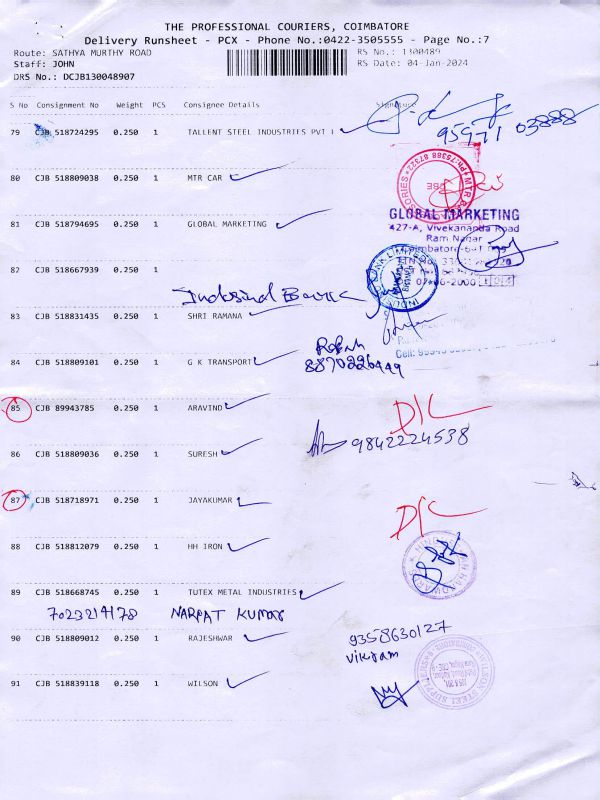 THE PROFESSIONAL COURIERS, COIMBATORE
Delivery Runsheet - PCX - Phone No.:0422-3505555 - Page No.:7
Route: SATHYA MURTHY ROAD RS No.: 1300489
Staff: JOHN RS Date: 04-Jan-2024
DRS No.: DCJB130048907
S No Consignment No Weight PCS Consignee Details Signature
79 CJB 518724295 0.250 1 TALLENT STEEL INDUSTRIES PVT
95971 03888
80 CJB 518809038 0.250 1 MTR CAR
81 CJB 518794695 0.250 1 GLOBAL MARKETING
GLOBAL MARKETING
427-A, Vivekananda Road
Ram Nagar
Coimbatore-641 009
82 CJB 518667939 0.250 1
Indusind Bank
83 CJB 518831435 0.250 1 SHRI RAMANA
84 CJB 518809101 0.250 1 G K TRANSPORT
8870226449
Cell:
85 CJB 89943785 0.250 1 ARAVIND D/C
86 CJB 518809036 0.250 1 SURESH 9842224538
87 CJB 518718971 0.250 1 JAYAKUMAR D/C
88 CJB 518812079 0.250 1 HH IRON
89 CJB 518668745 0.250 1 TUTEX METAL INDUSTRIES
7023214178 NARPAT KUMAR
90 CJB 518809012 0.250 1 RAJESHWAR 9358630127
vikram
91 CJB 518839118 0.250 1 WILSON
WILSON STEEL SUPPLIERS